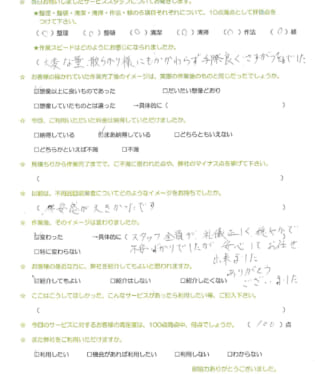 ★整理・整頓・清潔・清掃・作法・躾の各項目それぞれについて、10点満点として評価点を
つけて下さい。
( ) 整理 ( ) 整頓 ( ) 清潔 ( ) 清掃 ( ) 作法 ( ) 躾
★作業スピードはどのようにお感じになられましたか。
☆ お客様の描かれていた作業完了後のイメージは、実際の作業後のものと同じだったでしょうか。
□想像以上に良いものであった □だいたい想像どおり
□想像していたものとは違った →具体的に (
☆ 今回、ご利用いただいた料金は納得していただけましたか。
□納得している □まあ納得している □どちらともいえない
□どちらかといえば不満 □不満
☆ 見積もりから作業完了までで、ご不満に思われた点や、弊社のマイナス点を挙げて下さい。
(
☆ 以前は、不用品回収業者についてどのようなイメージをお持ちでしたか。
( 不安感が大きかったです
☆ 作業後、そのイメージは変わりましたか。
□変わった →具体的に ( スタッフ全員が礼儀正しく
□特に変わらない 不安ばかりでしたが 安心してお任せ
出来ました
☆ お客様の身近な方に、弊社を紹介してもよいと思われますか。
ありがとう
□紹介してもよい □紹介はしない □紹介したくない ございました
☆ ここはこうしてほしかった、こんなサービスがあったら利用したい等、ご記入下さい。
(
☆ 今回のサービスに対するお客様の満足度は、100点満点中、何点でしょうか。 ( 100 ) 点
☆ また弊社をご利用いただけますか。
□利用したい □機会があれば利用したい □利用しない □わからない
御協力ありがとうございました。